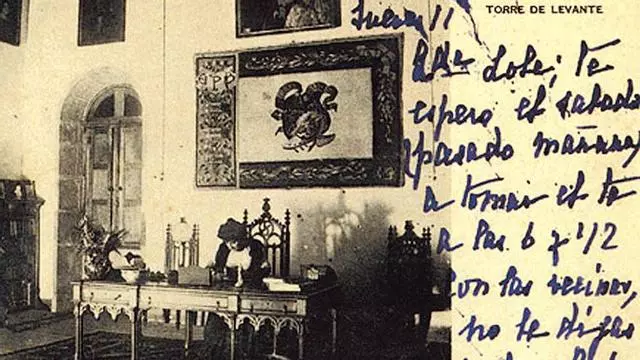 TORRE DE LEVANTE
Jueves 11
Qda Lola; te
espero el sabado
(pasado mañana)
a tomar el te
a las 6 y 1/2
con las vecinas,
no te digas